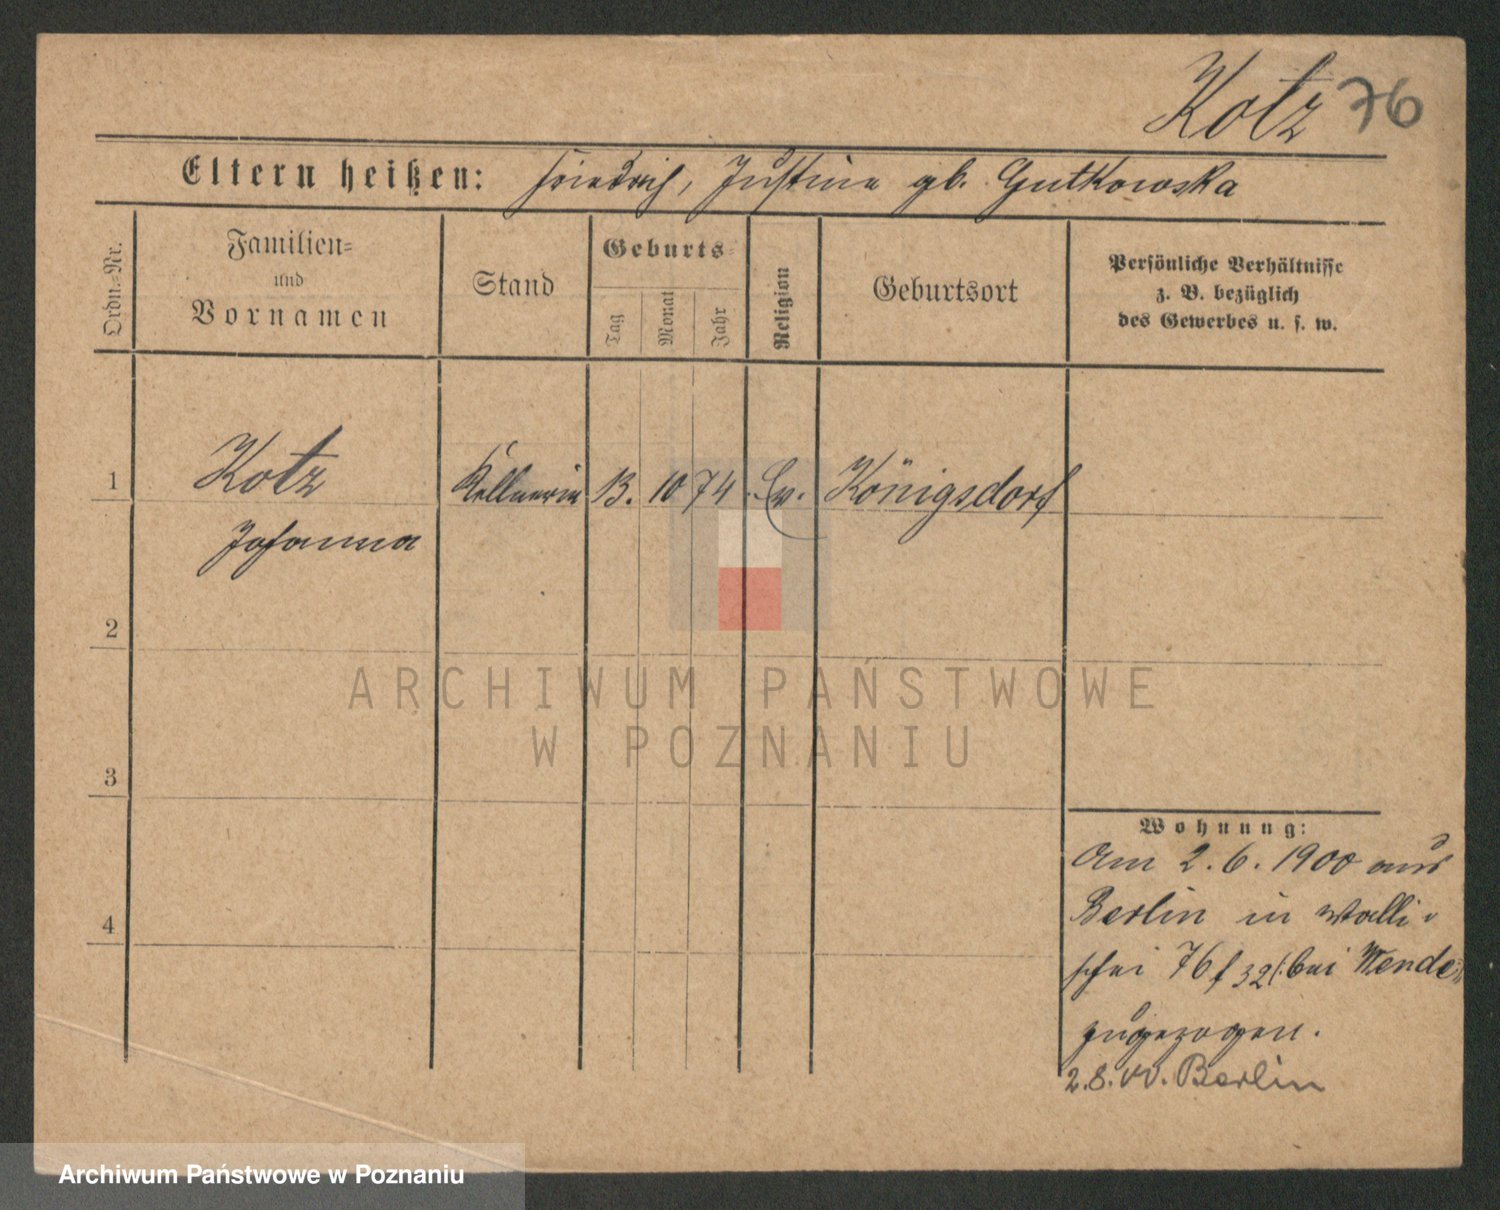 Kotz 76
Eltern heißen: Friedrich, Justine gb. Gutkowska
Ordn.-Nr.
Familien-
und
Vornamen
Stand
Geburts-
Tag
Monat
Jahr
Religion
Geburtsort
Persönliche Verhältnisse
z. B. bezüglich
des Gewerbes u. s. w.
1 Kotz Kellnerin 13. 10 74 Ev. Königsdorf
Johanna
2
3
4
Wohnung:
Am 2. 6. 1900 aus
Berlin in Walli-
schei 76 f 32 (: bei Wende :)
zugezogen.
2. 8. 00. Berlin
ARCHIWUM PAŃSTWOWE
W POZNANIU
Archiwum Państwowe w Poznaniu